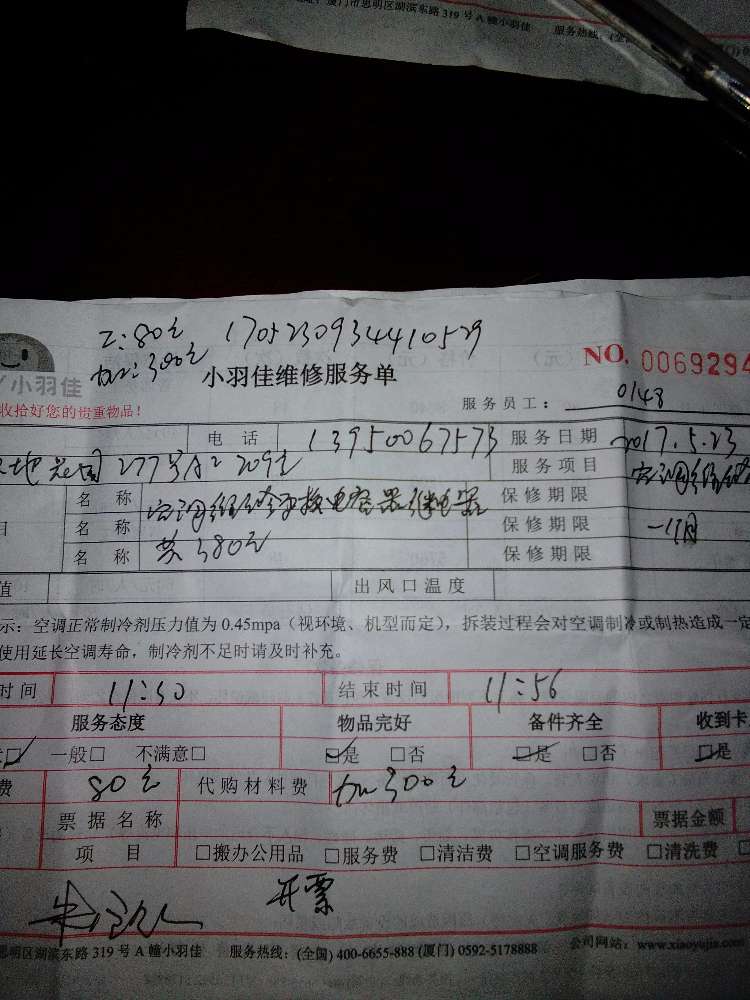 厦门市思明区湖滨东路 319 号 A 幢小羽佳 服务热线:(全
工:80元 1705230934410529
加:300元
小羽佳
小羽佳维修服务单
NO. 0069294
收拾好您的贵重物品!
服务员工: 0148
电 话 13950067573 服务日期 2017.5.23
地 花园 277号A2 209室 服务项目 空调维修
名 称 空调维修更换电容器继电器 保修期限
名 称 保修期限 一个月
名 称 共380元 保修期限
值 出风口温度
示:空调正常制冷剂压力值为 0.45mpa(视环境、机型而定),拆装过程会对空调制冷或制热造成一定
使用延长空调寿命,制冷剂不足时请及时补充。
时间 11:30 结束时间 11:56
服务态度 物品完好 备件齐全 收到卡
一般□ 不满意□ ☑是 □否 ☑是 □否 ☑是
费 80元 代购材料费 加300元
票据名称 票据金额
项 目 □搬办公用品 □服务费 □清洁费 □空调服务费 □清洗费
开票
思明区湖滨东路 319 号 A 幢小羽佳 服务热线:(全国) 400-6655-888 (厦门) 0592-5178888 公司网站:www.xiaoyujia.com